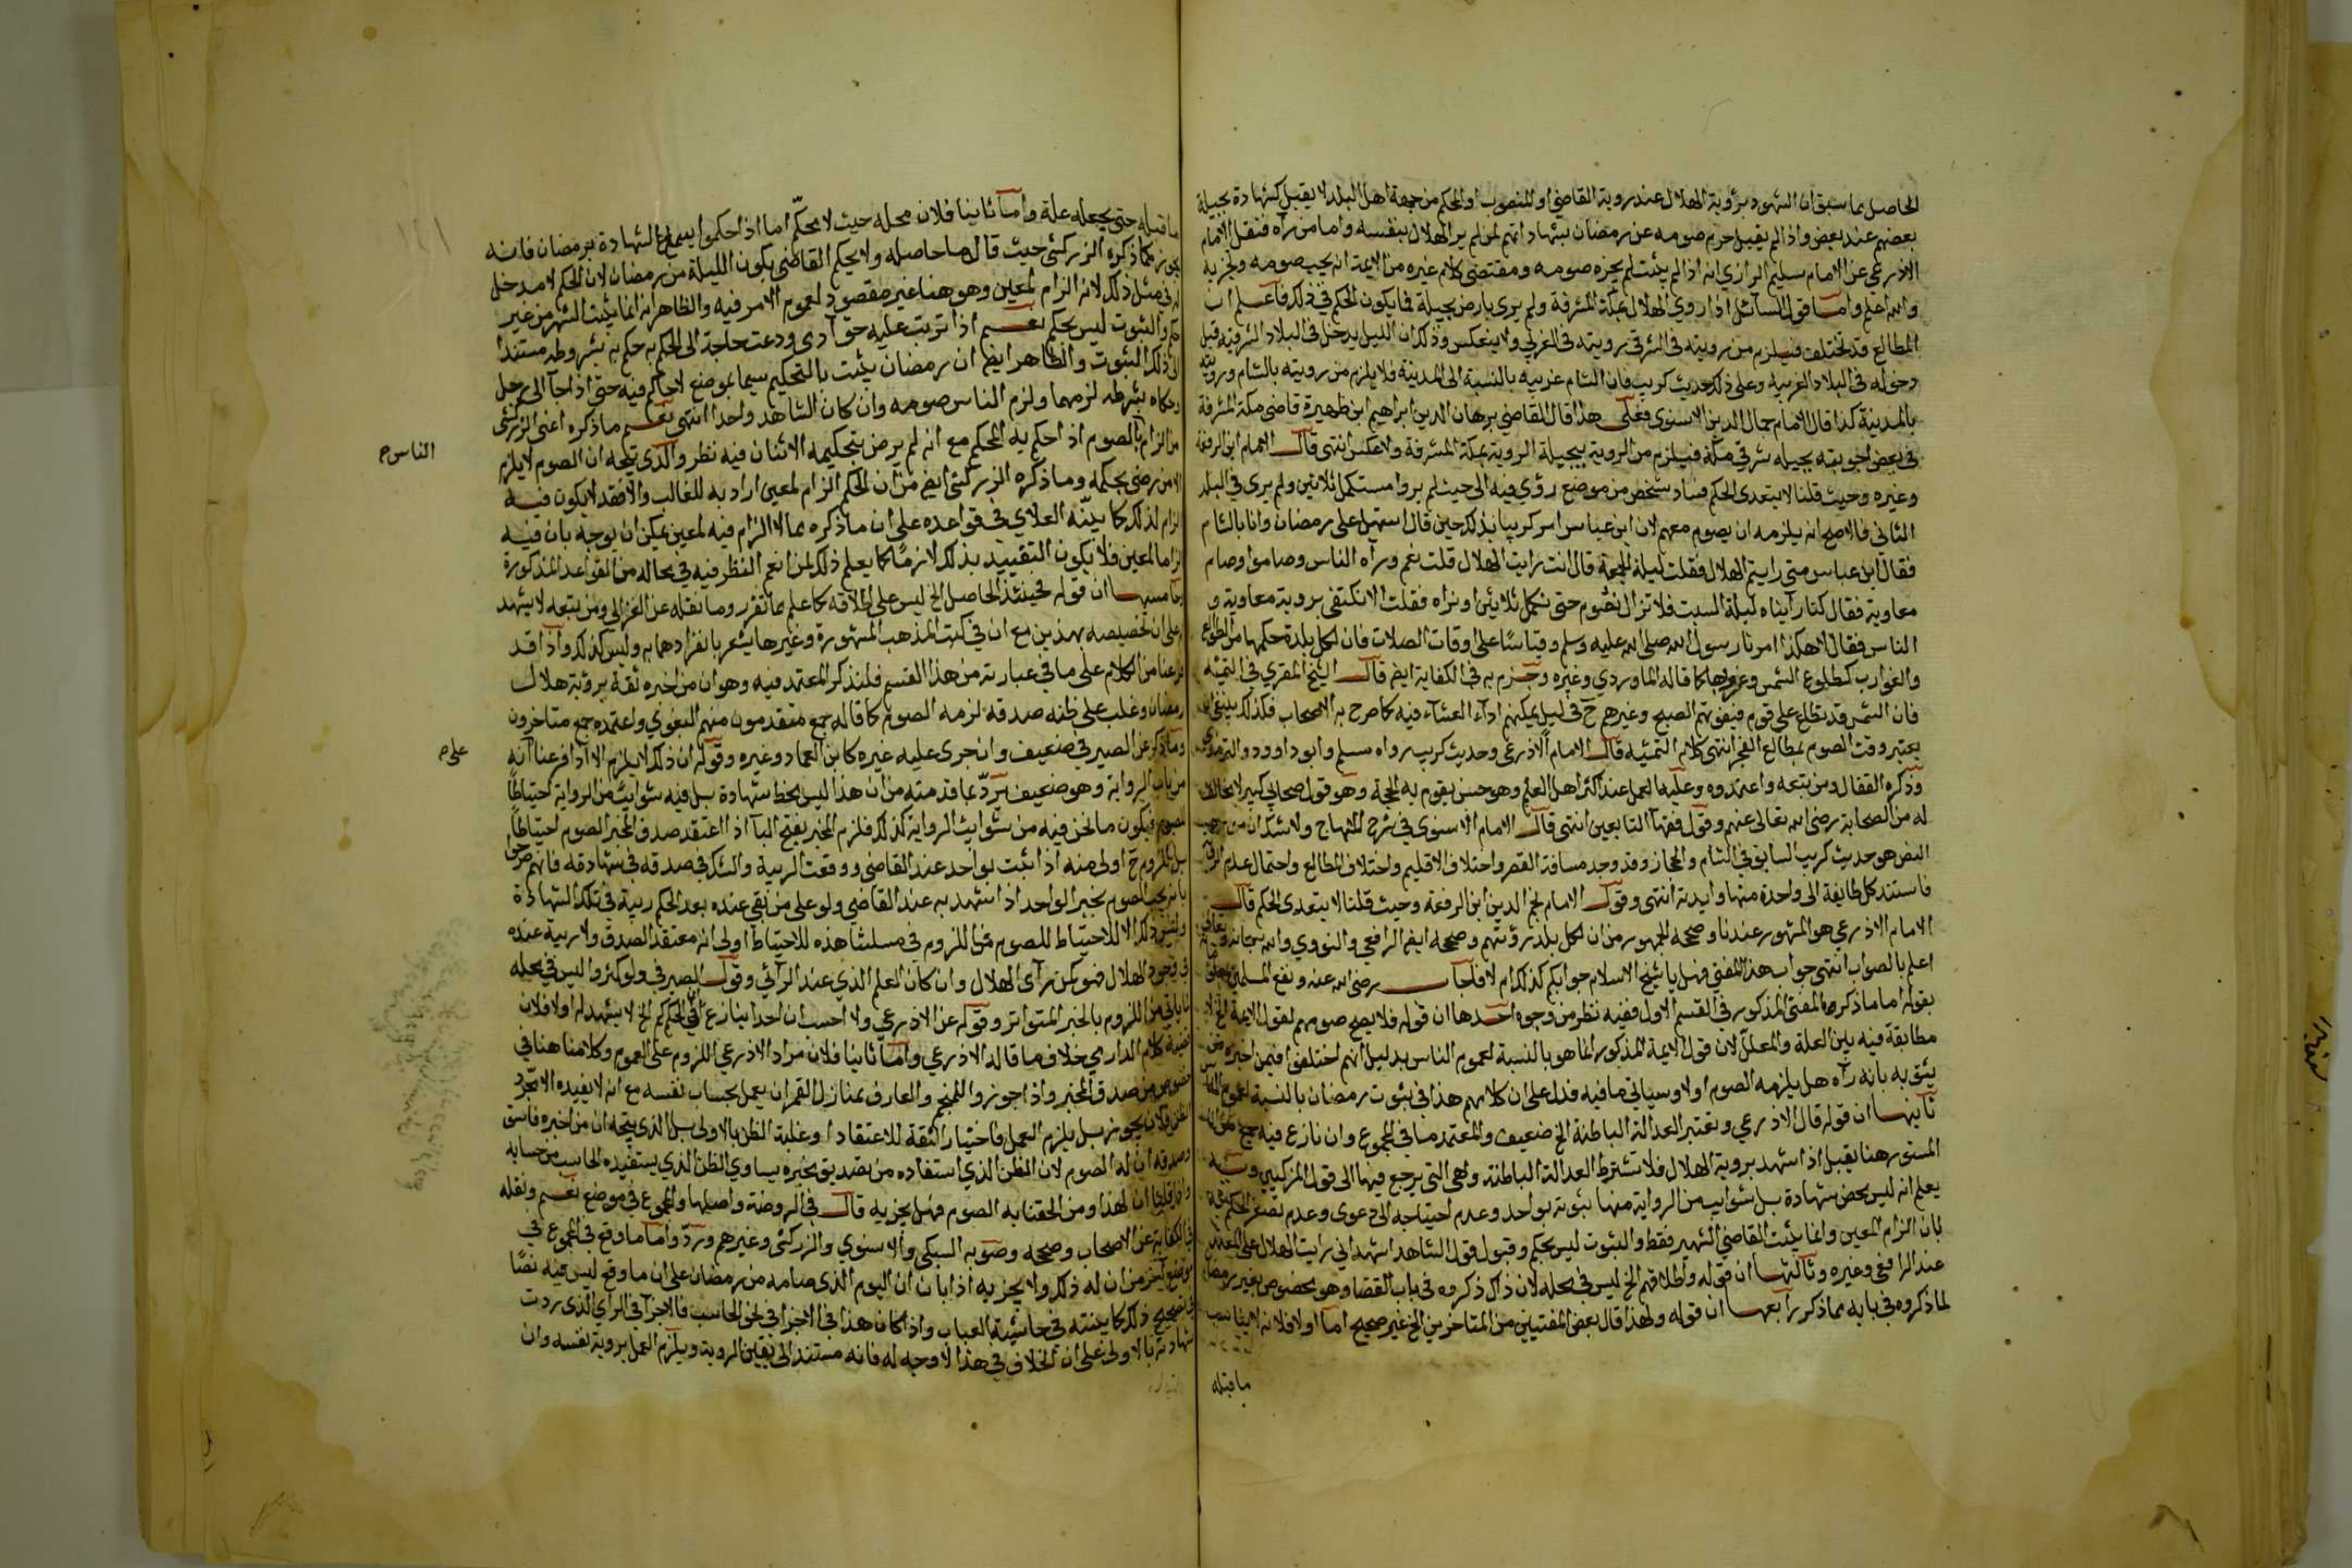 الحاصل بما سبق ان الشهود برؤية الهلال عند روية القاضي او المنصوب او الحكم من جهة اهل البلد لا يقبل كشهادة بجيلة
بعضهم عند بعض واذا لم يقبل حرم صومه عن رمضان بشهادتهم لمن لم ير الهلال بنفسه واما من رآه فنقل الامام
الاذرعي عن الامام سليم الرازي انه اذا لم يثبت لم يجزه صومه ومقتضى كلام غيره من الايمة انه يجب صومه ويجزيه
والله اعلم واما قول السائل اذا روي الهلال بمكة المشرفة ولم يرى بارض بجيلة فما يكون الحكم في ذلك فاعلم ان
المطالع قد تختلف فيلزم من رويته في الشرق رويته في الغرب ولا ينعكس وذلك ان الليل يدخل في البلاد الشرقية قبل
دخوله في البلاد الغربية وعلى ذلك حديث كريب فان الشام غربيه بالنسبة الى المدينة فلا يلزم من رويته بالشام ورويته
بالمدينة كذا قال الامام جمال الدين الاسنوي فعلى هذا قال القاضي برهان الدين ابراهيم ابن ظهيرة قاضي مكة المشرفة
في بعض اجوبته بجيله شرقي مكة فيلزم من الروية ببجيلة الروية بمكة المشرفة ولا عكس انتهى قال الامام ابن الرفعة
وغيره وحيث قلنا لا يتعدى الحكم فساد شخص من موضع رؤي فيه الى حيث لم يروا مستكمل ثلاثين ولم يرى في البلد
الثاني فالاصح انه يلزمه ان يصوم معهم لان ابن عباس امر كريبا بذلك حين قال استهل على رمضان وانا بالشام
فقال ابن عباس متى رايتم الهلال فقلت ليلة الجمعة قال انت رايت الهلال قلت نعم وراه الناس وصاموا وصام
معاوية فقال كنا رايناه ليلة السبت فلا تزال نصوم حتى نكمل ثلاثين او نراه فقلت الا تكتفي بروية معاوية و
الناس فقال لا هكذا امرنا رسول الله صلى الله عليه وسلم وقياسًا على اوقات الصلات فان لكل بلدة حكمها من الطوالع
والغوارب كطلوع الشمس وغروبها كما قاله الماوردي وغيره وجزم به في الكفاية ايض قال الشيخ المقري في التمشيه
فان الشمس قد تطلع على قوم فيفوتهم الصبح وغيرهم ح في ليل يمكنهم اداء العشآء فيه كما صرح به الاصحاب فكذلك ينبغي ان
يعتبر وقت الصوم بمطالع الفجر انتهى كلام التمشيه قال الامام الاذرعي وحديث كريب رواه مسلم وابو داوود والترمذي
وذكره القفال ومن تبعه واعتمدوه وعليه العمل عند اكثر اهل العلم وهو حسن يقوم به الحجة وهو قول صحابي كبير لا مخالف
له من الصحابة رضي الله تعالى عنهم وقول فقهآ التابعين انتهى قال الامام الاسنوي في شرح المنهاج ولا شك ان من
النص هو حديث كريب السابق في الشام والحجاز وقد وجد مسافة القصر واختلاف الاقليم واختلاف المطالع واحتمال عدم
فاستند كل طايفة الى واحدة منها وايدته انتهى وقول الامام نجم الدين ابن الرفعة وحيث قلنا لا يتعدى الحكم قال
الامام الاذرعي هو المشهور عندنا وصححه الجمهور من ان لكل بلد رؤيتهم وصححه ايض الرافعي والنووي والله سبحانه وتعالى
اعلم بالصواب انتهى جواب هذا المفتي فهل يا شيخ الاسلام جوابكم كذلك ام لا فاجاب رضي الله عنه ونفع المسلمين
بقوله اما ما ذكره المفتي المذكور في القسم الاول ففيه نظر من وجوه احدها ان قوله فلا يصح صومهم لقول الايمة الخ لا
مطابقة فيه بين العلة والمعلل لان قول الايمة المذكور انما هو بالنسبة لعموم الناس بدليل انهم اختلفوا فيمن اخبره من
يثق به بانه رآه هل يلزمه الصوم اولا وسياتي ما فيه فدل على ان كلامهم هذا في ثبوت رمضان بالنسبة لعموم
ثانيها ان قوله قال الاذرعي وتعتبر العدالة الباطنة الخ ضعيف والمعتمد ما في المجموع وان نازع فيه جمع
المستور هنا يقبل اذا شهد بروية الهلال فلا تشترط العدالة الباطنة وهي التي يرجع فيها الى قول المزكيين وسببه
يعلم انه ليس محض شهادة بل شوايب من الرواية منها ثبوته بواحد وعدم احتياجه الى دعوى وعدم تصور الحكم فيه
بان الزام لمعين وانما يثبت القاضي الشهر فقط والثبوت ليس بحكم وقبول قول الشاهد اشهد اني رايت الهلال على المعتمد
عند الرافعي وغيره وثالثها ان قوله واطلاقهم الخ ليس في محله لان ذاك ذكروه في باب القضا وهو مخصوص بغير رمضان
لما ذكروه في بابه مما ذكر رابعها ان قوله ولهذا قال بعض المفتيين من المتاخرين الخ غير صحيح اما اولا فلانه لا يناسب
ما قبله
ما قبله حتى يجعله علة واما ثانيا فلان محله حيث لا محكّم اما اذا حكموا يسمع الشهادة برمضان فانه
يجوز كما ذكره الزركشي حيث قال ما حاصله ولا يحكم القاضي بكون الليلة من رمضان لان الحكم لا مدخل
له في مثل ذلك لانه الزام لمعين وهو هنا غير مقصود لعموم الامر فيه والظاهر انه انما يثبت الشهر من غير
حكم والثبوت ليس بحكم نعم اذا ترتب عليه حق آدمي ودعت حاجة الى الحكم به حكم به بشروطه مستندا
الى ذلك الثبوت والظاهر ايض ان رمضان يثبت بالتحكيم سيما بموضع لا حاكم فيه حتى اذا جآ الى رجل
وحكماه بشرطه لزمهما ولزم الناس صومه وان كان الشاهد واحدا انتهى نعم ما ذكره اعني الزركشي
من الزام الناس بالصوم اذا حكم به المحكم مع انه لم يرض بتحكيمه الا اثنان فيه نظر والذي يتجه ان الصوم لا يلزم
الا من رضي بحكمه وما ذكره الزركشي ايض من ان الحكم الزام لمعين اراد به الغالب والا فقد لا يكون فيه
الزام لذلك كما بيّنه العلاي في قواعده على ان ما ذكره مما لا الزام فيه لمعين يمكن ان يوجه بان فيه
الزاما لمعين فلا يكون التقييد بذلك لازمًا كما يعلم ذلك لمن انعم النظر فيه في محاله من القواعد المذكورة
خامسها ان قوله فحينئذ الحاصل الخ ليس على اطلاقه كما علم مما تقرر وما نقله عن الغزالي ومن تبعه لا يشهد
على ان تخصيصه بهذين مع ان في كتب المذهب المشهورة وغيرها يشعر بانفرادهما به وليس كذلك واذا قد
فرغنا من الكلام على ما في عبارته من هذا القسم فلنذكر المعتمد فيه وهو ان من اخبره ثقة برؤية هلال
رمضان وغلب على ظنه صدقه لزمه الصوم كما قاله جمع متقدمون منهم البغوي واعتمده جمع متاخرون
وما ذكر عن الصيمري ضعيف وان جرى عليه غيره كابن العماد وغيره وقوله ان ذلك لا يلزم الا اذا فرعنا على انه
من باب الرواية وهو ضعيف يردّ بما قدمته من ان هذا ليس محض شهادة بل فيه شوايب من الرواية احتياطًا
للصوم فيكون ما نحن فيه من شوايب الرواية كذلك فلزم المخبر بفتح البآ اذا اعتقد صدق المخبر الصوم احتياطًا
بل اللزوم ح اولى منه اذا اثبت بواحد عند القاضي ووقعت الريبة والشك في صدقه في شهادته فانهم صرحوا
بانه يجب الصوم بخبر الواحد اذا شهد به عند القاضي ولو على من بقي عنده بعد الحكم ريبة في تلك الشهادة
وليس ذلك الا للاحتياط للصوم فاللزوم في مسئلتنا هذه للاحتياط اولى لانه معتقد الصدق ولا ريبة عنده
في وجود الهلال فهو كمن رآى الهلال وان كان العلم الذي عند الرآئي وقول الصيمري ولو كثروا ليس في محله
لما ياتي من اللزوم بالخبر المتواتر وقوله عن الاذرعي ولا احسب ان احدا ينازع في الحكم الخ لا يشهد له اولا فلان
قضية كلام الدارمي خلاف ما قاله الاذرعي واما ثانيا فلان مراد الاذرعي اللزوم على العموم وكلامنا هنا في
خصوص من صدق المخبر واذا جوزوا للمنجم والعارف بمنازل القمر ان يعمل بحساب نفسه مع انه لا يفيده الا مجرّد
ظن فلان يجوز بل يلزم العمل باخبار الثقة للاعتقاد او غلبة الظن بالاولى بل الذي يتجه ان من اخبره فاسق
وصدقه ان له الصوم لان الظن الذي استفاده من تصديق مخبره يساوي الظن الذي يستفيده الحاسب من حسابه
وان قلنا ان لهذا ومن الحقنا به الصوم فهل يجزيه قال في الروضة واصلها والمجموع في موضع نعم ونقله
في الكفاية عن الاصحاب وصححه وصوبه السبكي والاسنوي والزركشي وغيرهم وردّوا ما وقع في المجموع في
موضع آخر من ان له ذلك ولا يجزيه اذا بان ان اليوم الذي صامه من رمضان على ان ما وقع ليس فيه نصًا
في تصحيح ذلك كما بينته في حاشية العباب واذا كان هذا في الاجزا في نحو الحاسب فالاجزآ في الراي الذي ردت
شهادته بالاولى على ان الخلاف في هذا لا وجه له فانه مستند الى يقين الروية ويلزم العمل بروية نفسه وان
الناس ص
على ص